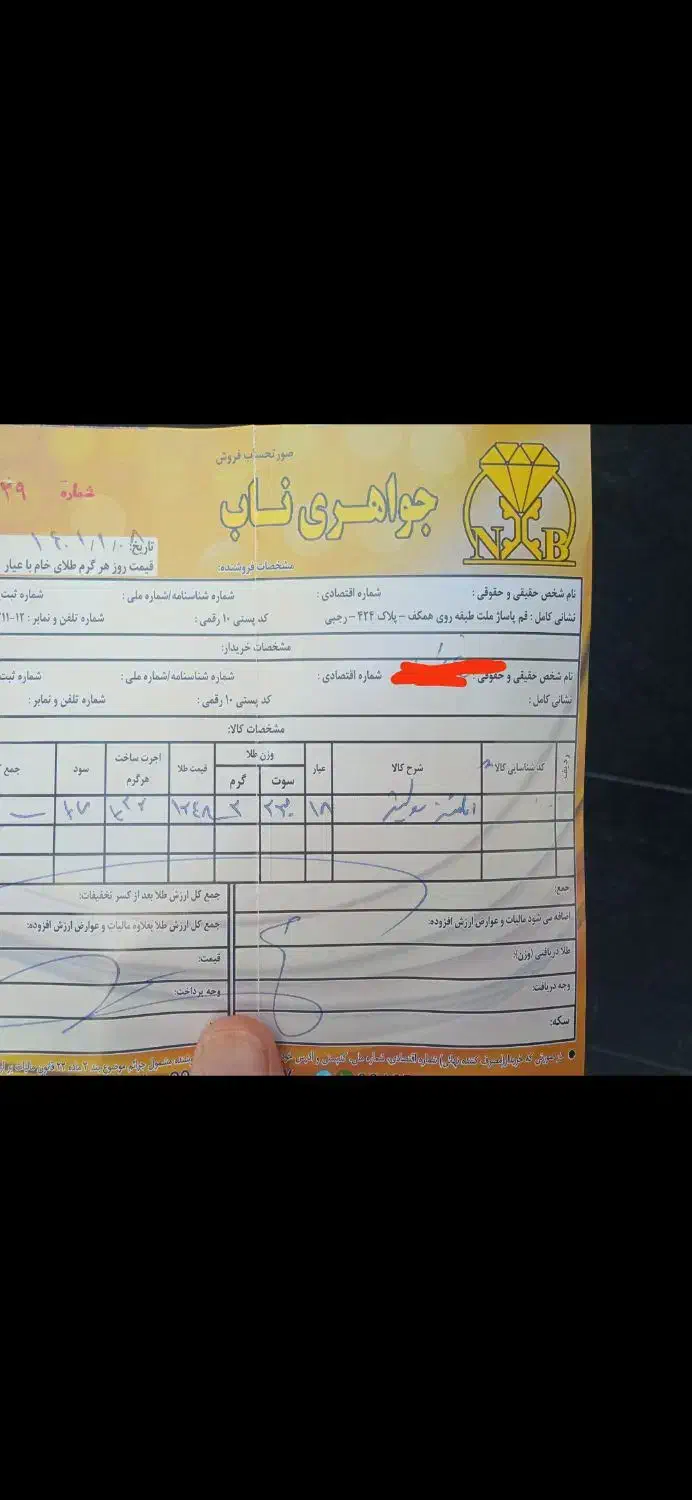 صورتحساب فروش
جواهری ناب
NB
شماره ۳۹
تاریخ:
قیمت روز هر گرم طلای خام با عیار
مشخصات فروشنده:
نام شخص حقیقی و حقوقی : شماره اقتصادی : شماره شناسنامه/شماره ملی : شماره ثبت
نشانی کامل : قم پاساژ ملت طبقه روی همکف – پلاک ۴۲۴ – رجبی کد پستی ۱۰ رقمی : شماره تلفن و نمابر : ۱۲-۱۱
مشخصات خریدار:
نام شخص حقیقی و حقوقی : شماره اقتصادی : شماره شناسنامه/شماره ملی : شماره ثبت
نشانی کامل : کد پستی ۱۰ رقمی : شماره تلفن و نمابر :
مشخصات کالا:
ردیف کد شناسایی کالا شرح کالا عیار وزن طلا سوت گرم قیمت طلا اجرت ساخت هرگرم سود جمع
۱۸ ۲۳۰ ۳ ۱۲۴۸
جمع: جمع کل ارزش طلا بعد از کسر تخفیفات:
اضافه می شود مالیات و عوارض ارزش افزوده: جمع کل ارزش طلا بعلاوه مالیات و عوارض ارزش افزوده:
طلا دریافتی (وزن): قیمت:
وجه دریافت: وجه پرداخت:
سکه:
در صورتی که خریدار(مصرف کننده نهائی) شماره اقتصادی، شماره ملی، کدپستی و آدرس مشمول جرائم موضوع بند ۲ ماده ۲۲ قانون مالیات